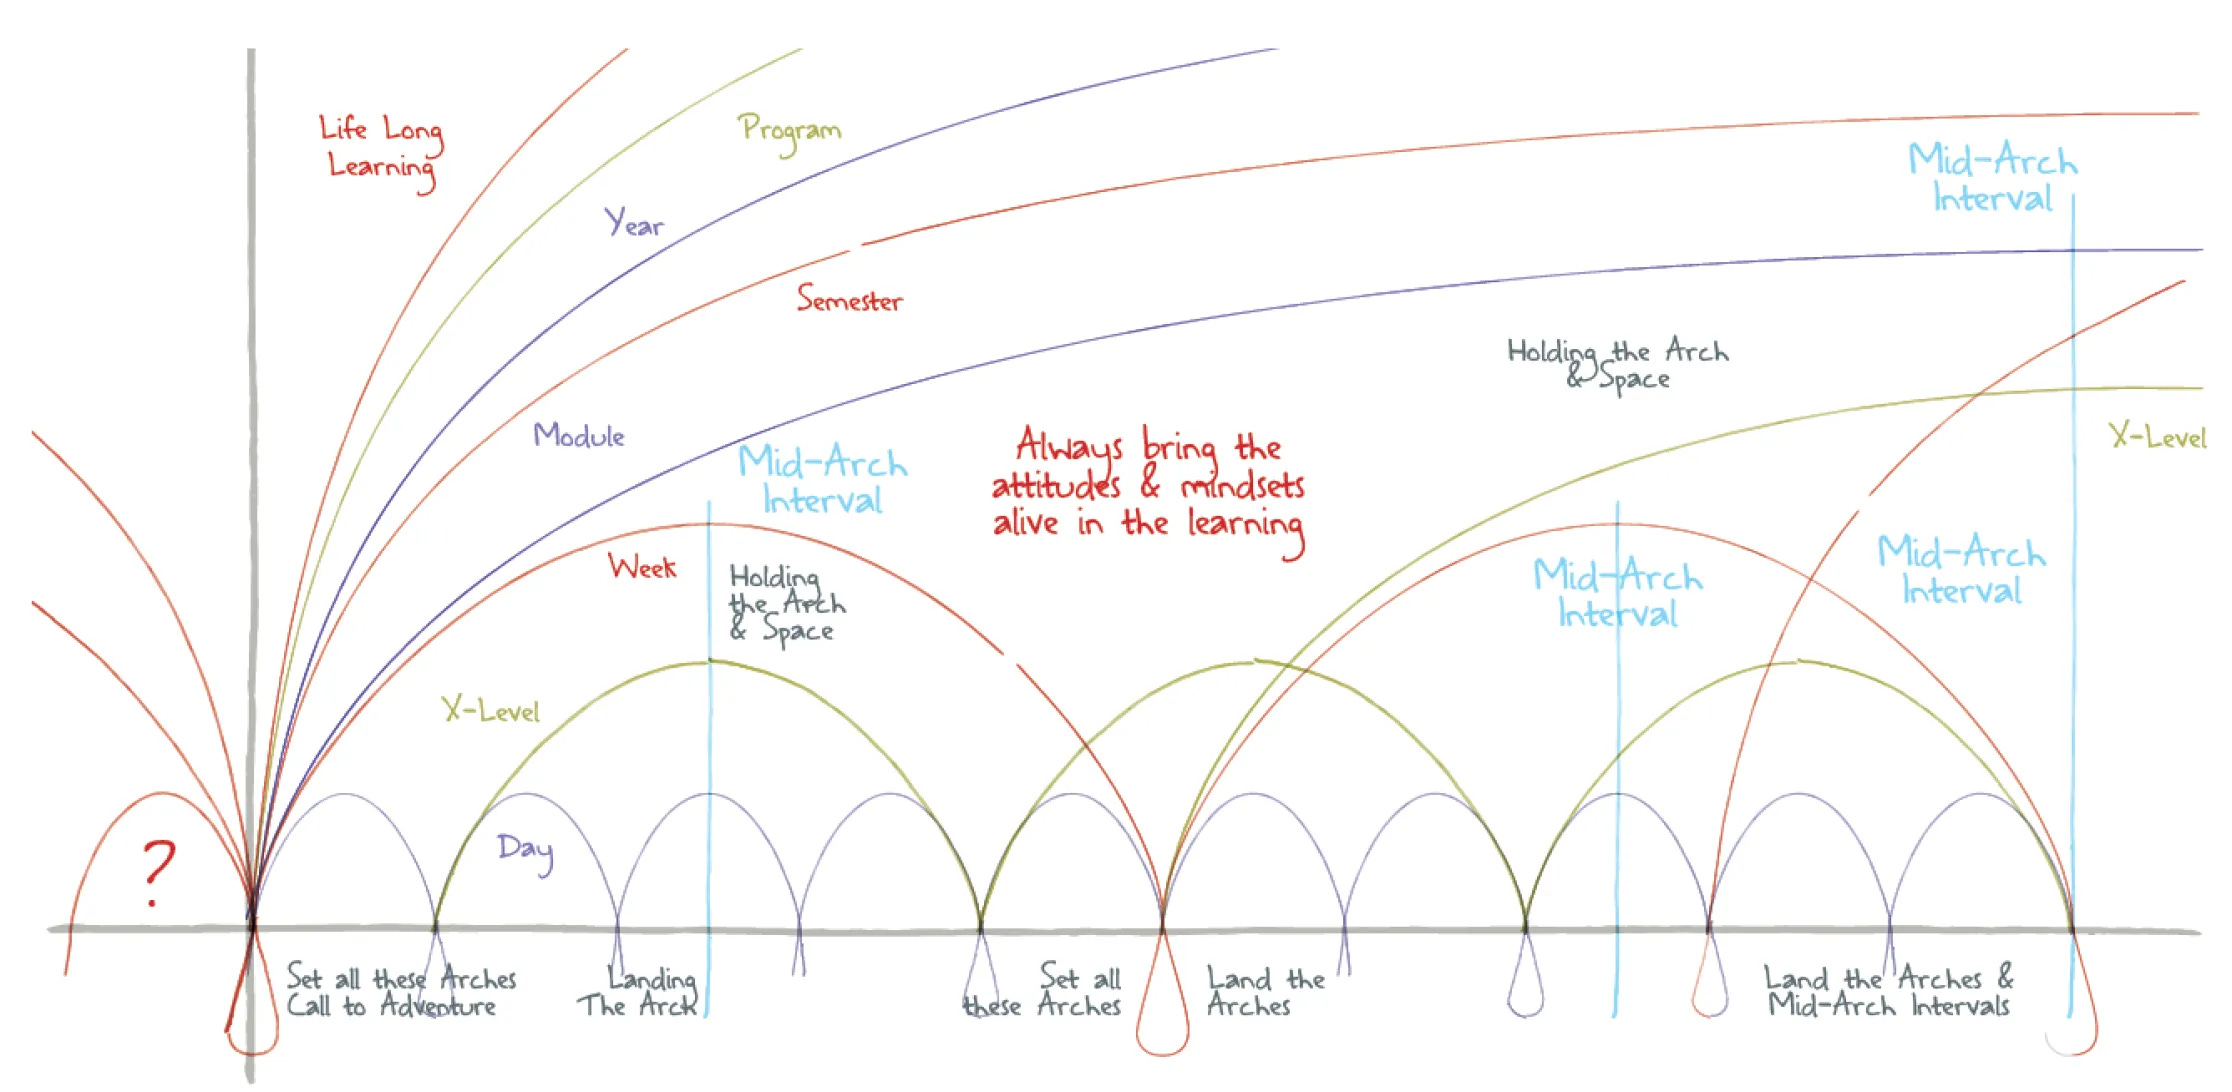 Life Long
Learning
Program
Year
Semester
Mid-Arch
Interval
Holding the Arch
& Space
X-Level
Module
Mid-Arch
Interval
Always bring the
attitudes & mindsets
alive in the learning
Week
Holding
the Arch
& Space
Mid-Arch
Interval
Mid-Arch
Interval
X-Level
Day
?
Set all these Arches
Call to Adventure
Landing
The Arch
Set all
these Arches
Land the
Arches
Land the Arches &
Mid-Arch Intervals